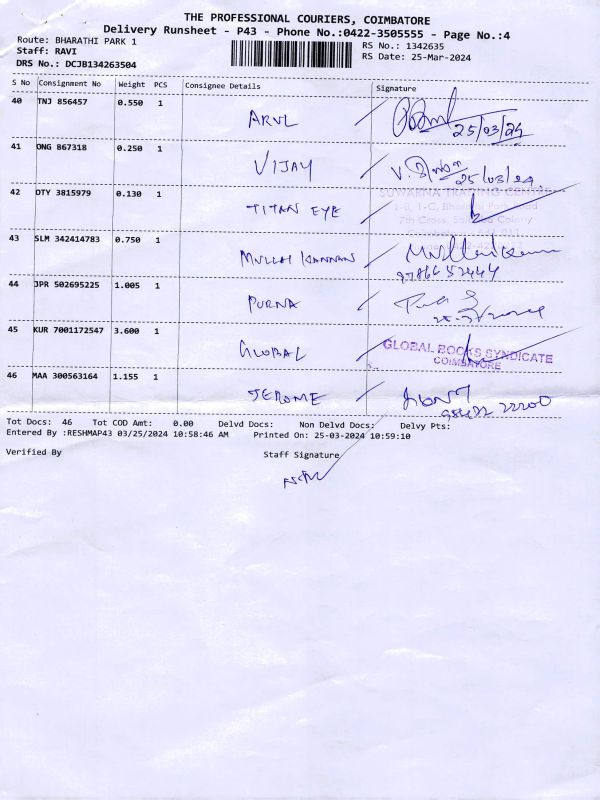 THE PROFESSIONAL COURIERS, COIMBATORE
Delivery Runsheet - P43 - Phone No.:0422-3505555 - Page No.:4
Route: BHARATHI PARK 1
RS No.: 1342635
Staff: RAVI
RS Date: 25-Mar-2024
DRS No.: DCJB134263504
S No Consignment No Weight PCS Consignee Details Signature
40 TNJ 856457 0.550 1 ARUL 25/03/24
41 ONG 867318 0.250 1 VIJAY 25/03/24
SUWARNA TRADING CENTRE
42 DTY 3815979 0.130 1 TITAN EYE
43 SLM 342414783 0.750 1 MULLAI KANNAN
44 JPR 502695225 1.005 1 PURNA
45 KUR 7001172547 3.600 1 GLOBAL
GLOBAL BOOKS SYNDICATE
COIMBATORE
46 MAA 300563164 1.155 1 JEROME
Tot Docs: 46 Tot COD Amt: 0.00 Delvd Docs: Non Delvd Docs: Delvy Pts:
Entered By :RESHMAP43 03/25/2024 10:58:46 AM Printed On: 25-03-2024 10:59:10
Verified By Staff Signature